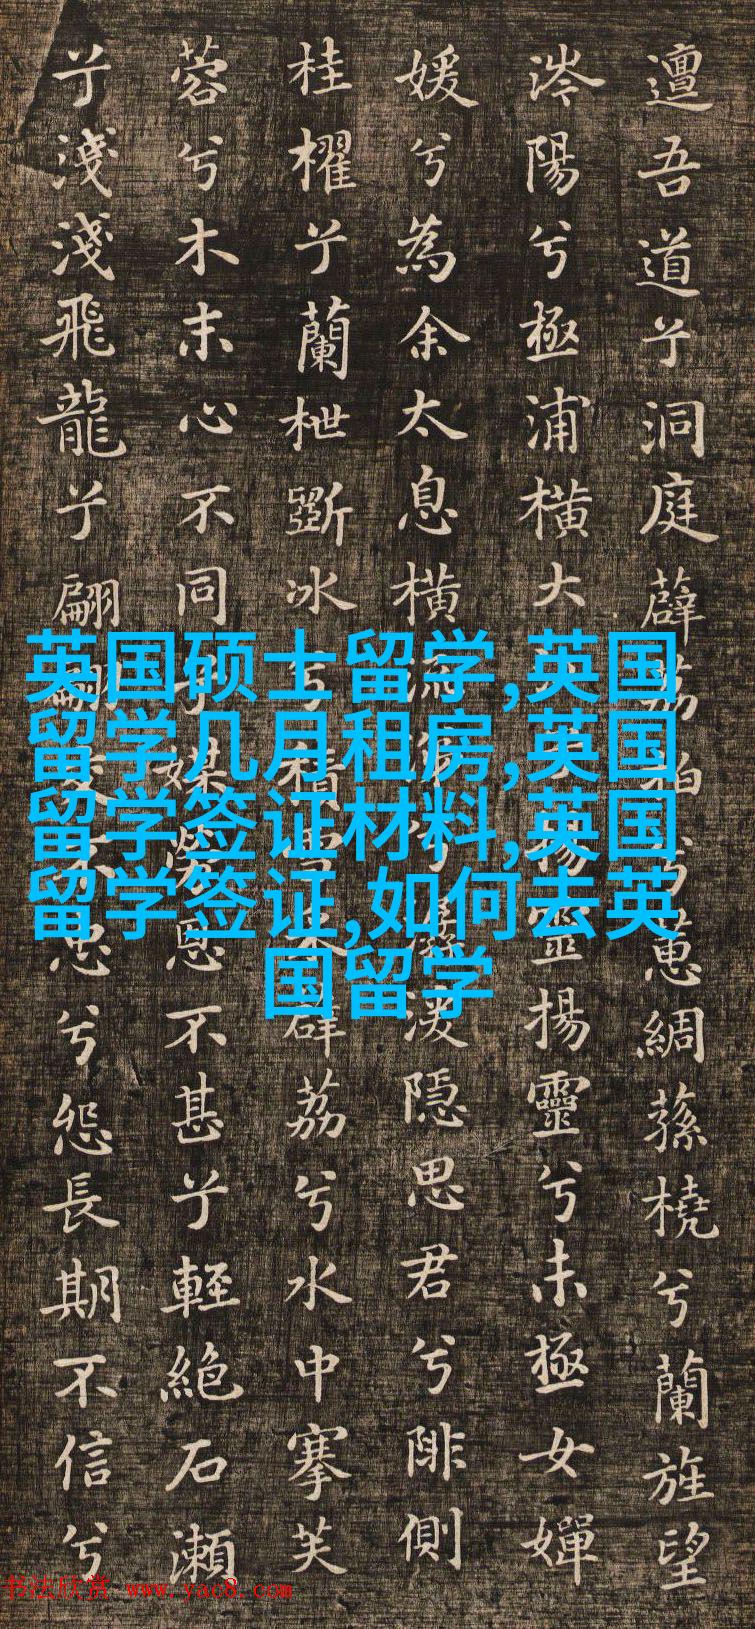 邅吾道兮洞庭薜荔拍兮蕙綢蓀橈兮蘭旌望
涔陽兮極浦橫大江兮揚靈揚靈兮未極女嬋
媛兮為余太息橫流涕兮潺湲隱思君兮陫側
桂櫂兮蘭枻斲冰兮積雪采薜荔兮水中搴芙
蓉兮木末心不同兮媒勞恩不甚兮輕絶石瀬
兮淺淺飛龍兮翩翩交不忠兮怨長期不信兮
英国硕士留学,英国
留学几月租房,英国
留学签证材料,英国
留学签证,如何去英
国留学
书法欣赏 www.yac8.com